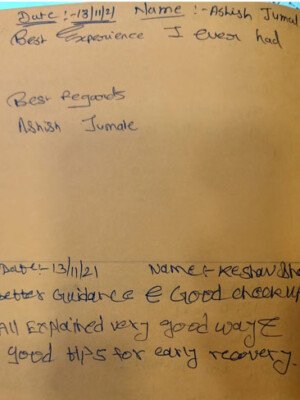 Date :- 13/11/21 Name :- Ashish Jumal
Best Experience I ever had
Best Regards
Ashish Jumale
Date:- 13/11/21 Name:- Keshav Sha
better Guidance & Good checkup
All Explained very good way &
good tips for early recovery.